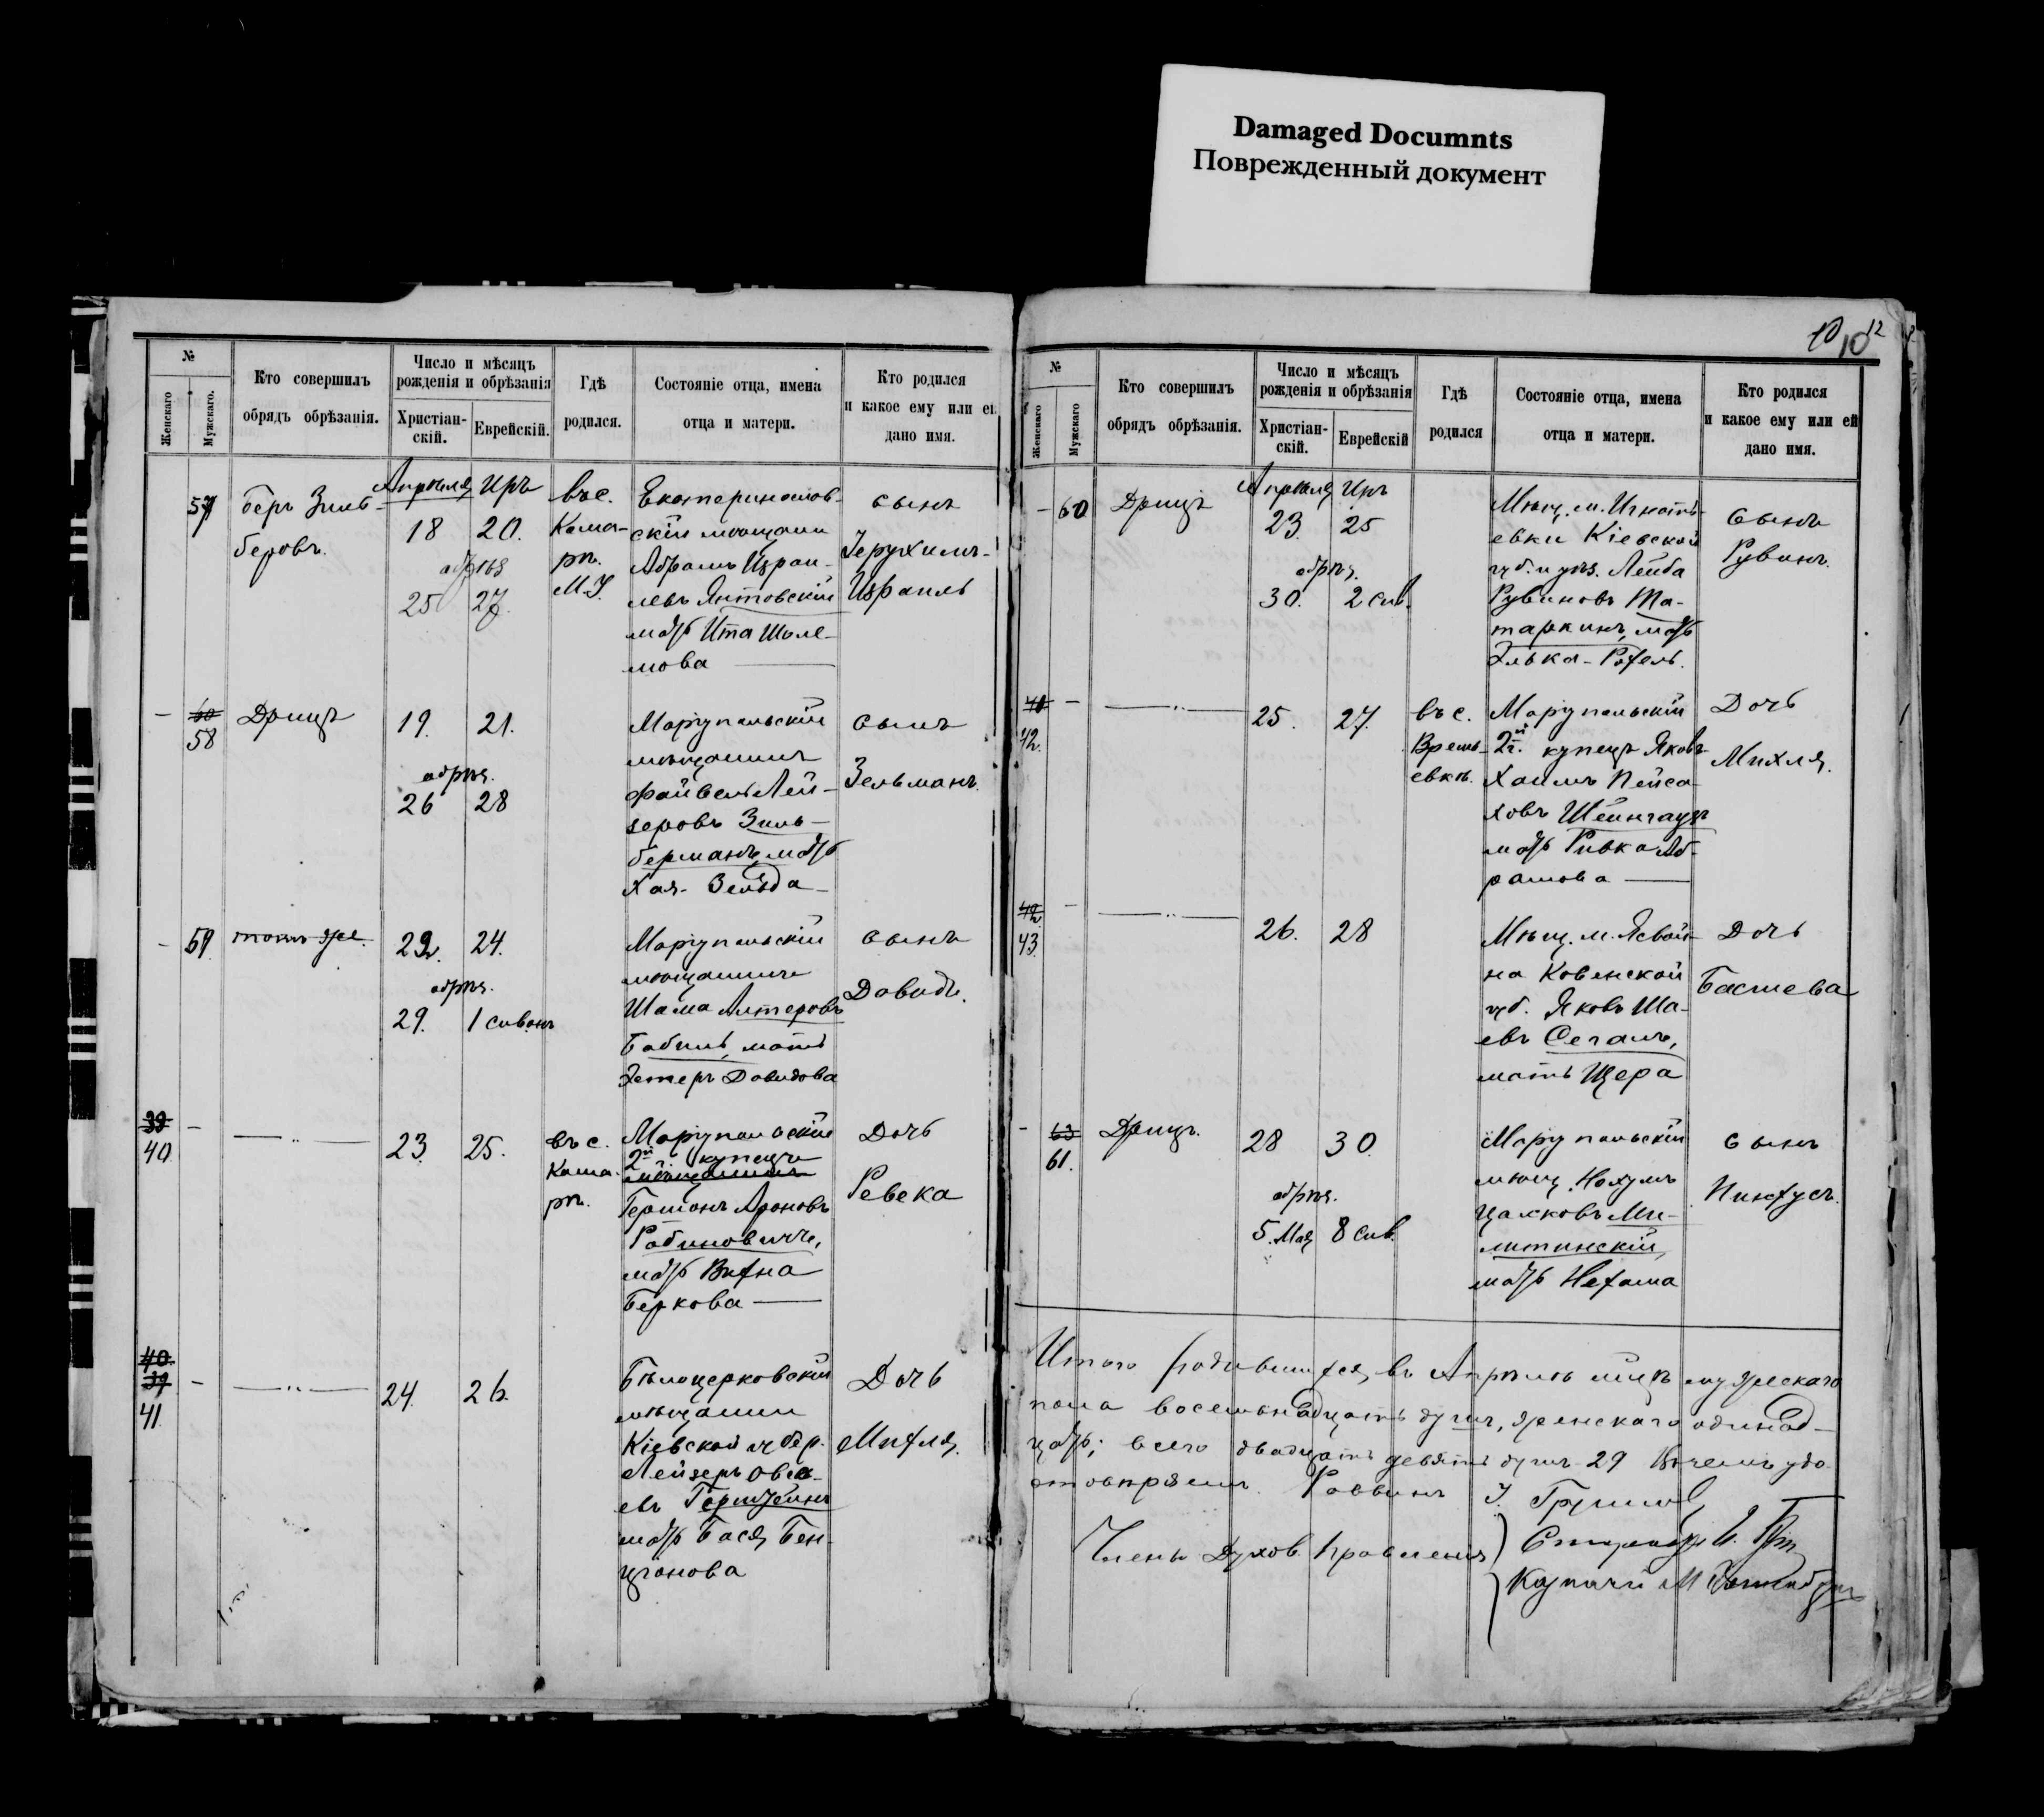 Damaged Documnts
Поврежденный документ
№
Женскаго
Мужскаго.
Кто совершилъ
обрядъ обрѣзанія.
Число и мѣсяцъ
рожденія и обрѣзанія
Христіан-
скій.
Еврейскій.
Гдѣ
родился.
Состояніе отца, имена
отца и матери.
Кто родился
и какое ему или ей
дано имя.
57
Беръ Зиль-
беровъ.
Апрѣля
18
25
Иръ
20.
27.
въ с.
Екатеринослав-
скій мѣщанин
Абрамъ Израи-
левъ
матрь Ита Шоле-
мова
сынъ
Іерухимъ-
Израиль
60
58
Дрицъ
19.
обрѣз.
26
21.
28
Маріупольскій
мѣщанинъ
Файвель Лей-
зеровъ Зиль-
берманъ, мать
Хая-Зельда
сынъ
Зельманъ.
59
тотъ же
22
обрѣз.
29.
24.
1 сиванъ
Маріупольскій
мѣщанинъ
Шама Алтеровъ
мать
Эстеръ Давидова
сынъ
Давидъ.
39
40
23.
25.
въ с.
Маріупольскій
2й г. купецъ
мѣщанинъ
Гершонъ Ароновъ
Рабиновичъ,
мать Вихна
Беркова
Дочь
Ревека
40.
39
41
24.
26.
Бѣлоцерковскій
мѣщанин
Кіевской губер.
Лейзеръ Овсе-
евъ
мать Бася Бен-
ціонова
Дочь
Михля.
10
12
№
Женскаго
Мужскаго
Кто совершилъ
обрядъ обрѣзанія.
Число и мѣсяцъ
рожденія и обрѣзанія
Христіан-
скій.
Еврейскій
Гдѣ
родился
Состояніе отца, имена
отца и матери.
Кто родился
и какое ему или ей
дано имя.
60
Дрицъ
Апрѣля
23.
обрѣз.
30.
Иръ
25
2 сив.
Мѣщ. м. Игнать-
евки Кіевской
губ. и уѣз. Лейба
Рувиновъ Та-
таркинъ, мать
Элька-Рохель.
сынъ
Рувинъ.
42.
25.
27.
въ с.
Время-
евкѣ.
Маріупольскій
2й г. купецъ Яковъ
Хаимъ Пейса-
ховъ Штейнгаузъ
мать Ривка Аб-
рамова
Дочь
Михля.
42
43.
26.
28
Мѣщ. м. Явой-
на Ковенской
губ. Яковъ Ша-
евъ Сегалъ,
мать Щера
Дочь
Басшева
63
61.
Дрицъ.
28
обрѣз.
5 Мая
30
8 сив.
Маріупольскій
мѣщ. Нохумъ
Цалковъ Ми-
литинскій,
мать Нехама
сынъ
Пинхусъ.
Итого родившихся въ Апрѣлѣ мцѣ мужескаго
пола восемьнадцать душъ, женскаго одинад-
цать; всего двадцать девять душъ 29 Въ чемъ удо-
стовѣряемъ. Раввинъ
Члены Духов. Правленія
Казначій М